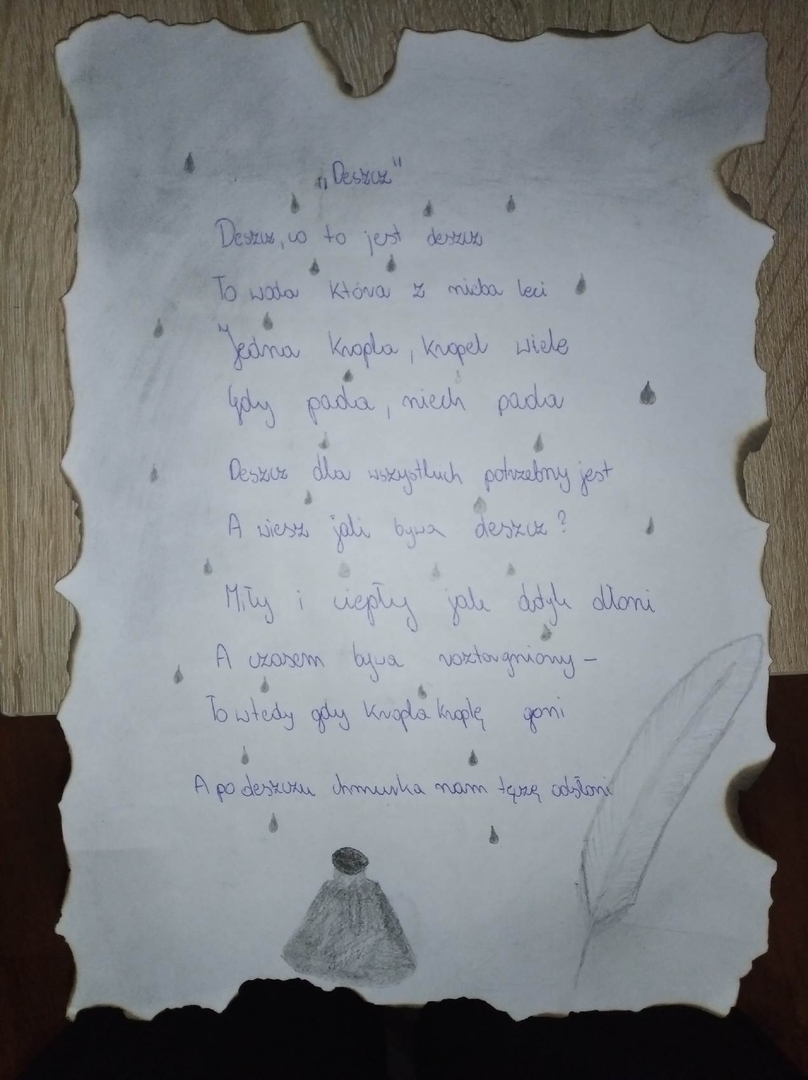 „Deszcz"
Deszcz, co to jest deszcz
To woda która z nieba leci
Jedna kropla, kropel wiele
Gdy pada, niech pada
Deszcz dla wszystkich potrzebny jest
A wiesz jaki bywa deszcz?
Miły i ciepły jak dotyk dłoni
A czasem bywa roztargniony –
To wtedy gdy kropla kroplę goni
A po deszczu chmurka nam tęczę odsłoni